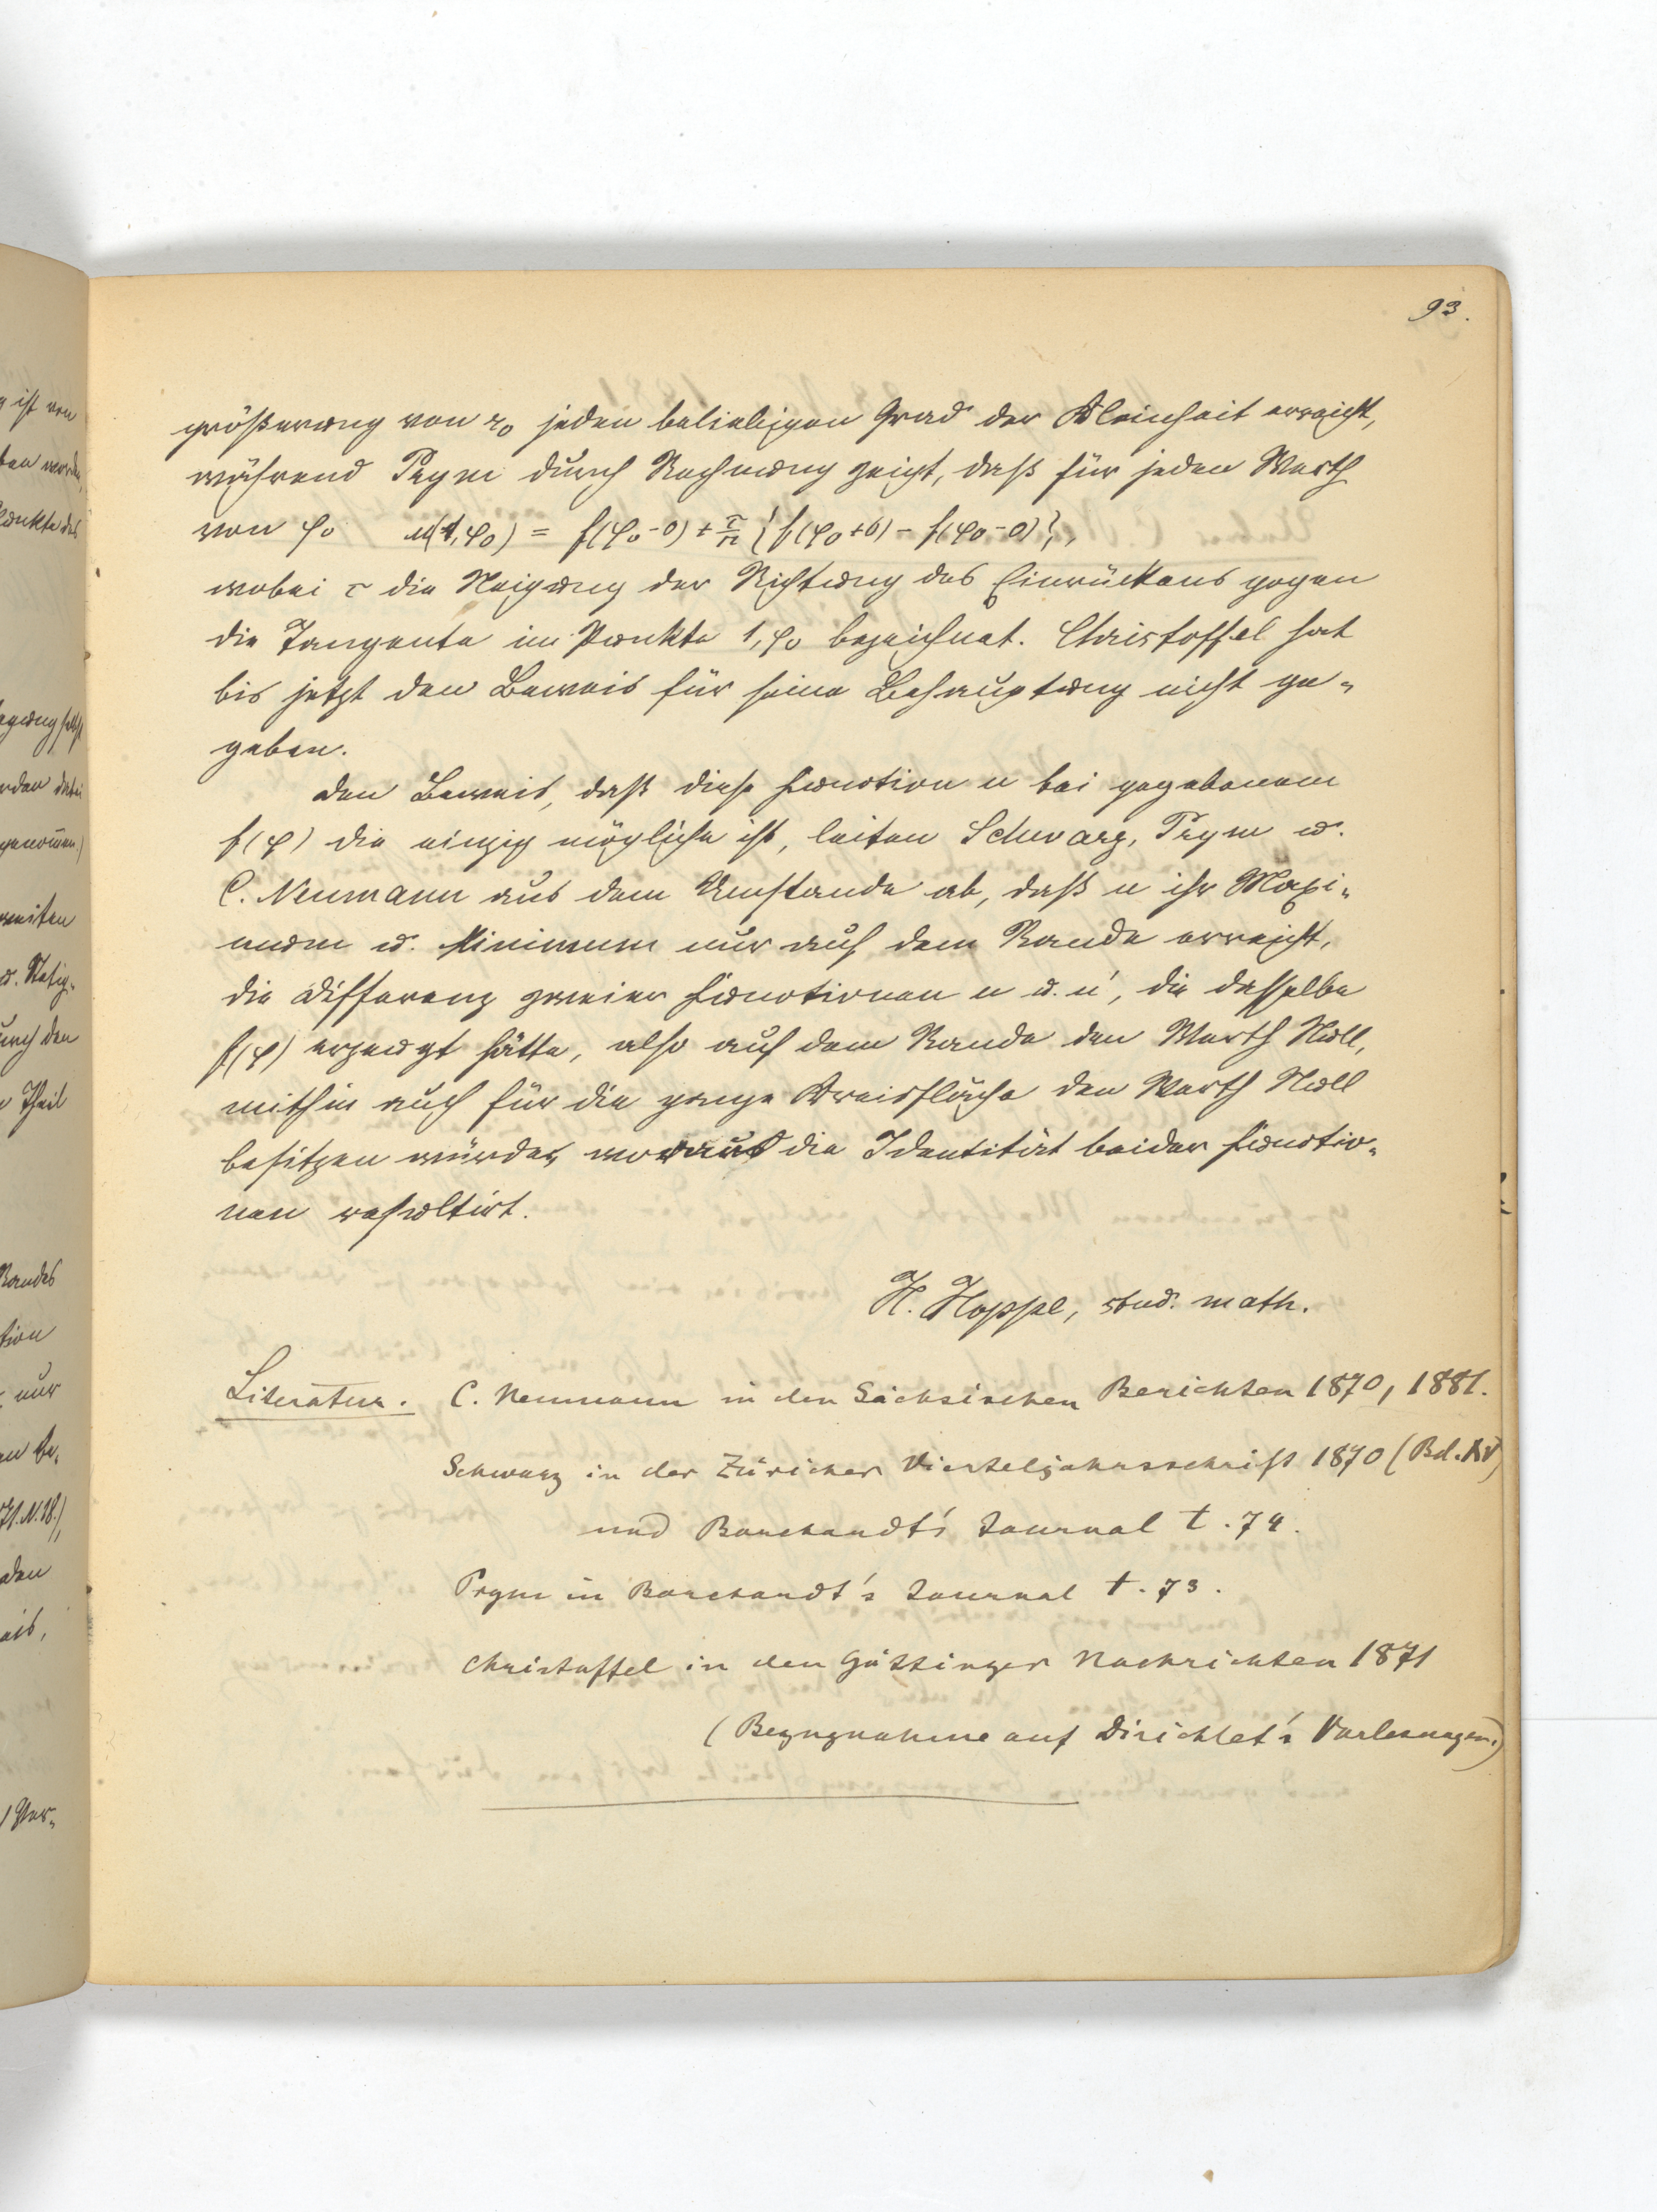 93.
größerung von r₀ jeden beliebigen Grad der Kleinheit erreicht,
während Prym durch Rechnung zeigt, daß für jeden Werth
von φ₀ u(1,φ₀) = f(φ₀-0) + τ/π {f(φ₀+0) - f(φ₀-0)},
wobei τ die Neigung der Richtung des Einrückens gegen
die Tangente im Punkte 1,φ₀ bezeichnet. Christoffel hat
bis jetzt den Beweis für seine Behauptung nicht ge-
geben.
Den Beweis, daß diese Function u bei gegebenem
f(φ) die einzig mögliche ist, leiten Schwarz, Prym u.
C. Neumann aus dem Umstande ab, daß u ihr Maxi-
mum u. Minimum nur auf dem Rande erreicht,
die Differenz zweier Functionen u u. u', die dasselbe
f(φ) erzeugt hätte, also auf dem Rande den Werth Null,
mithin auch für die ganze Kreisfläche den Werth Null
besitzen würde, woraus die Identität beider Functio-
nen resultirt.
H. Hoppe, stud. math.
Literatur. C. Neumann in den Sächsischen Berichten 1870, 1881.
Schwarz in der Züricher Vierteljahrsschrift 1870 (Bd. XV)
und Borchardt's Journal t. 74.
Prym in Borchardt's Journal t. 73.
Christoffel in den Göttinger Nachrichten 1871
(Bezugnahme auf Dirichlet's Vorlesungen.)